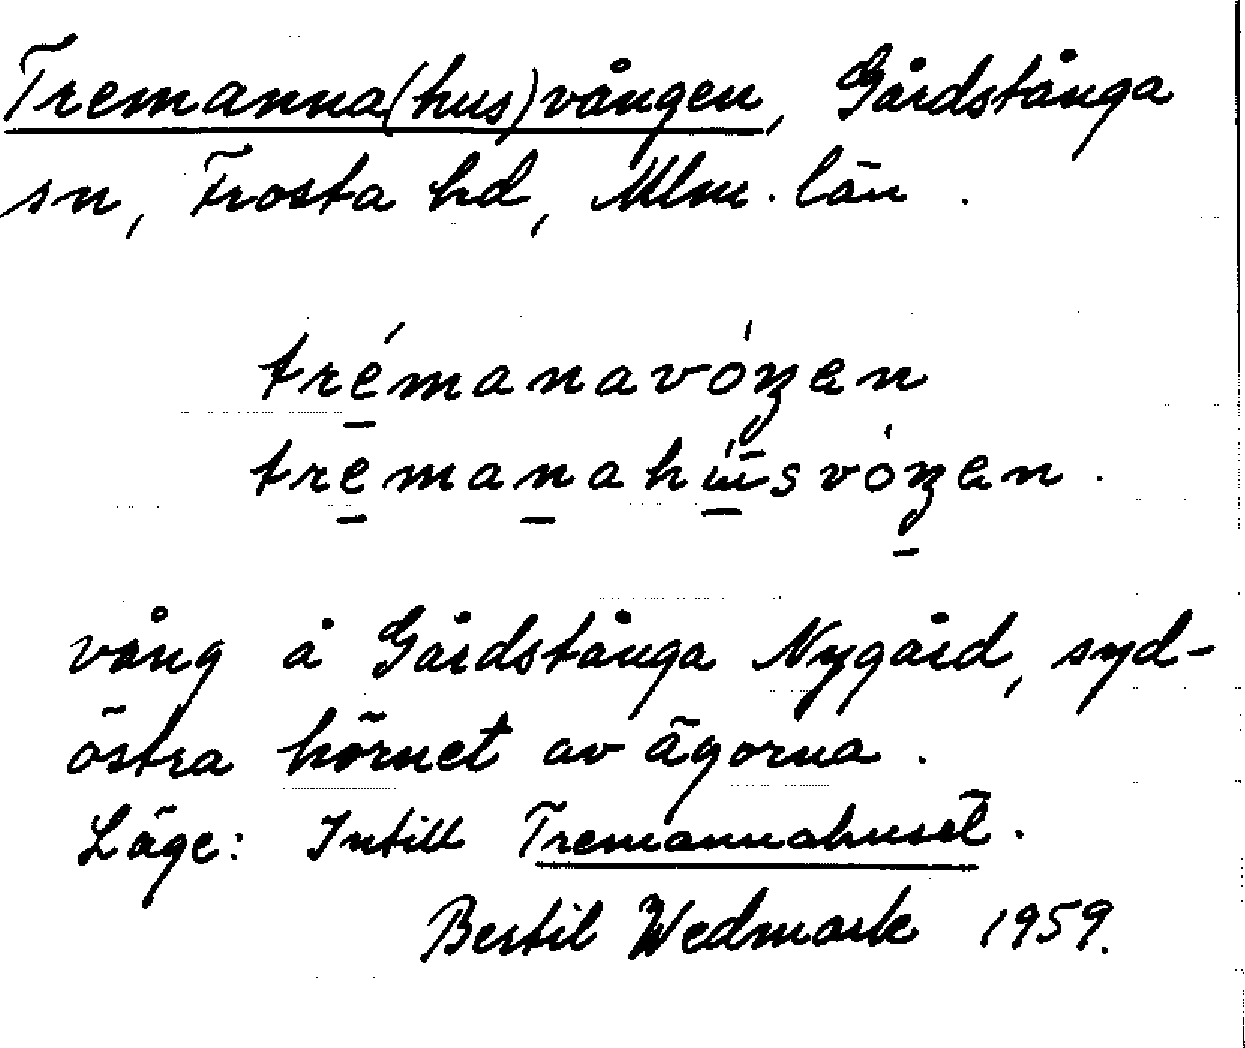 Tremanna(hus)vången, Gårdstånga
sn, Frosta hd, Mlm. län.
trémanavóŋen
tremanahúsvóŋen.
vång å Gårdstånga Nygård, syd-
östra hörnet av ägorna.
Läge: Intill Tremannahuset.
Bertil Wedmark 1959.